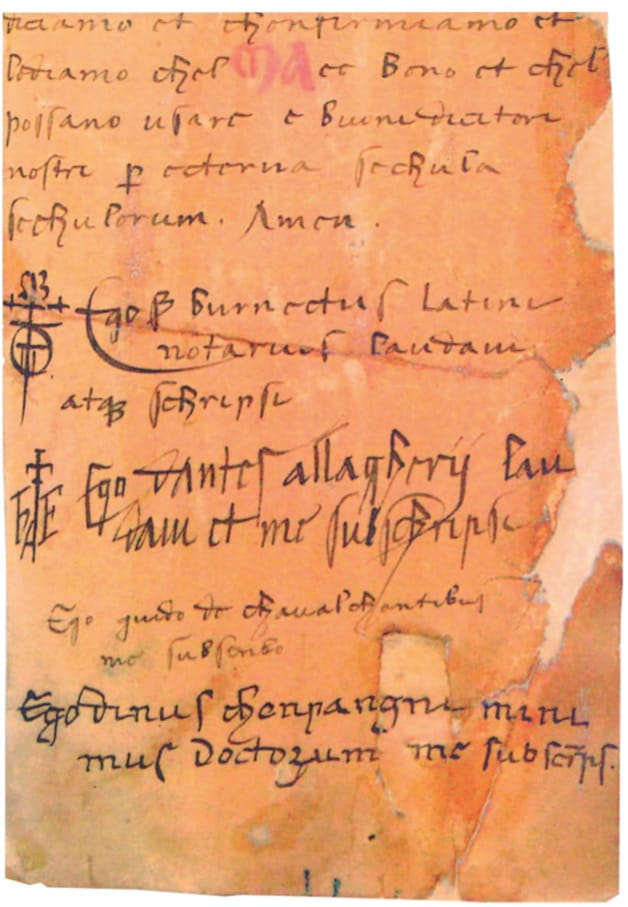 diciamo et chonfirmiamo et
lediamo chel MA ec Bono et chel
possano usare e buoni dicitori
nostri p ecterna sechula
sechulorum. Amen.
Ego B burnectus Latini
notarius laudavi
atq schripsi
Ego dantes allagherij lau
davi et me subschripsi
Ego guido de chavalchantibus
me subscribo
Ego dinus chenpangni mini
mus Doctorum me subscrips.